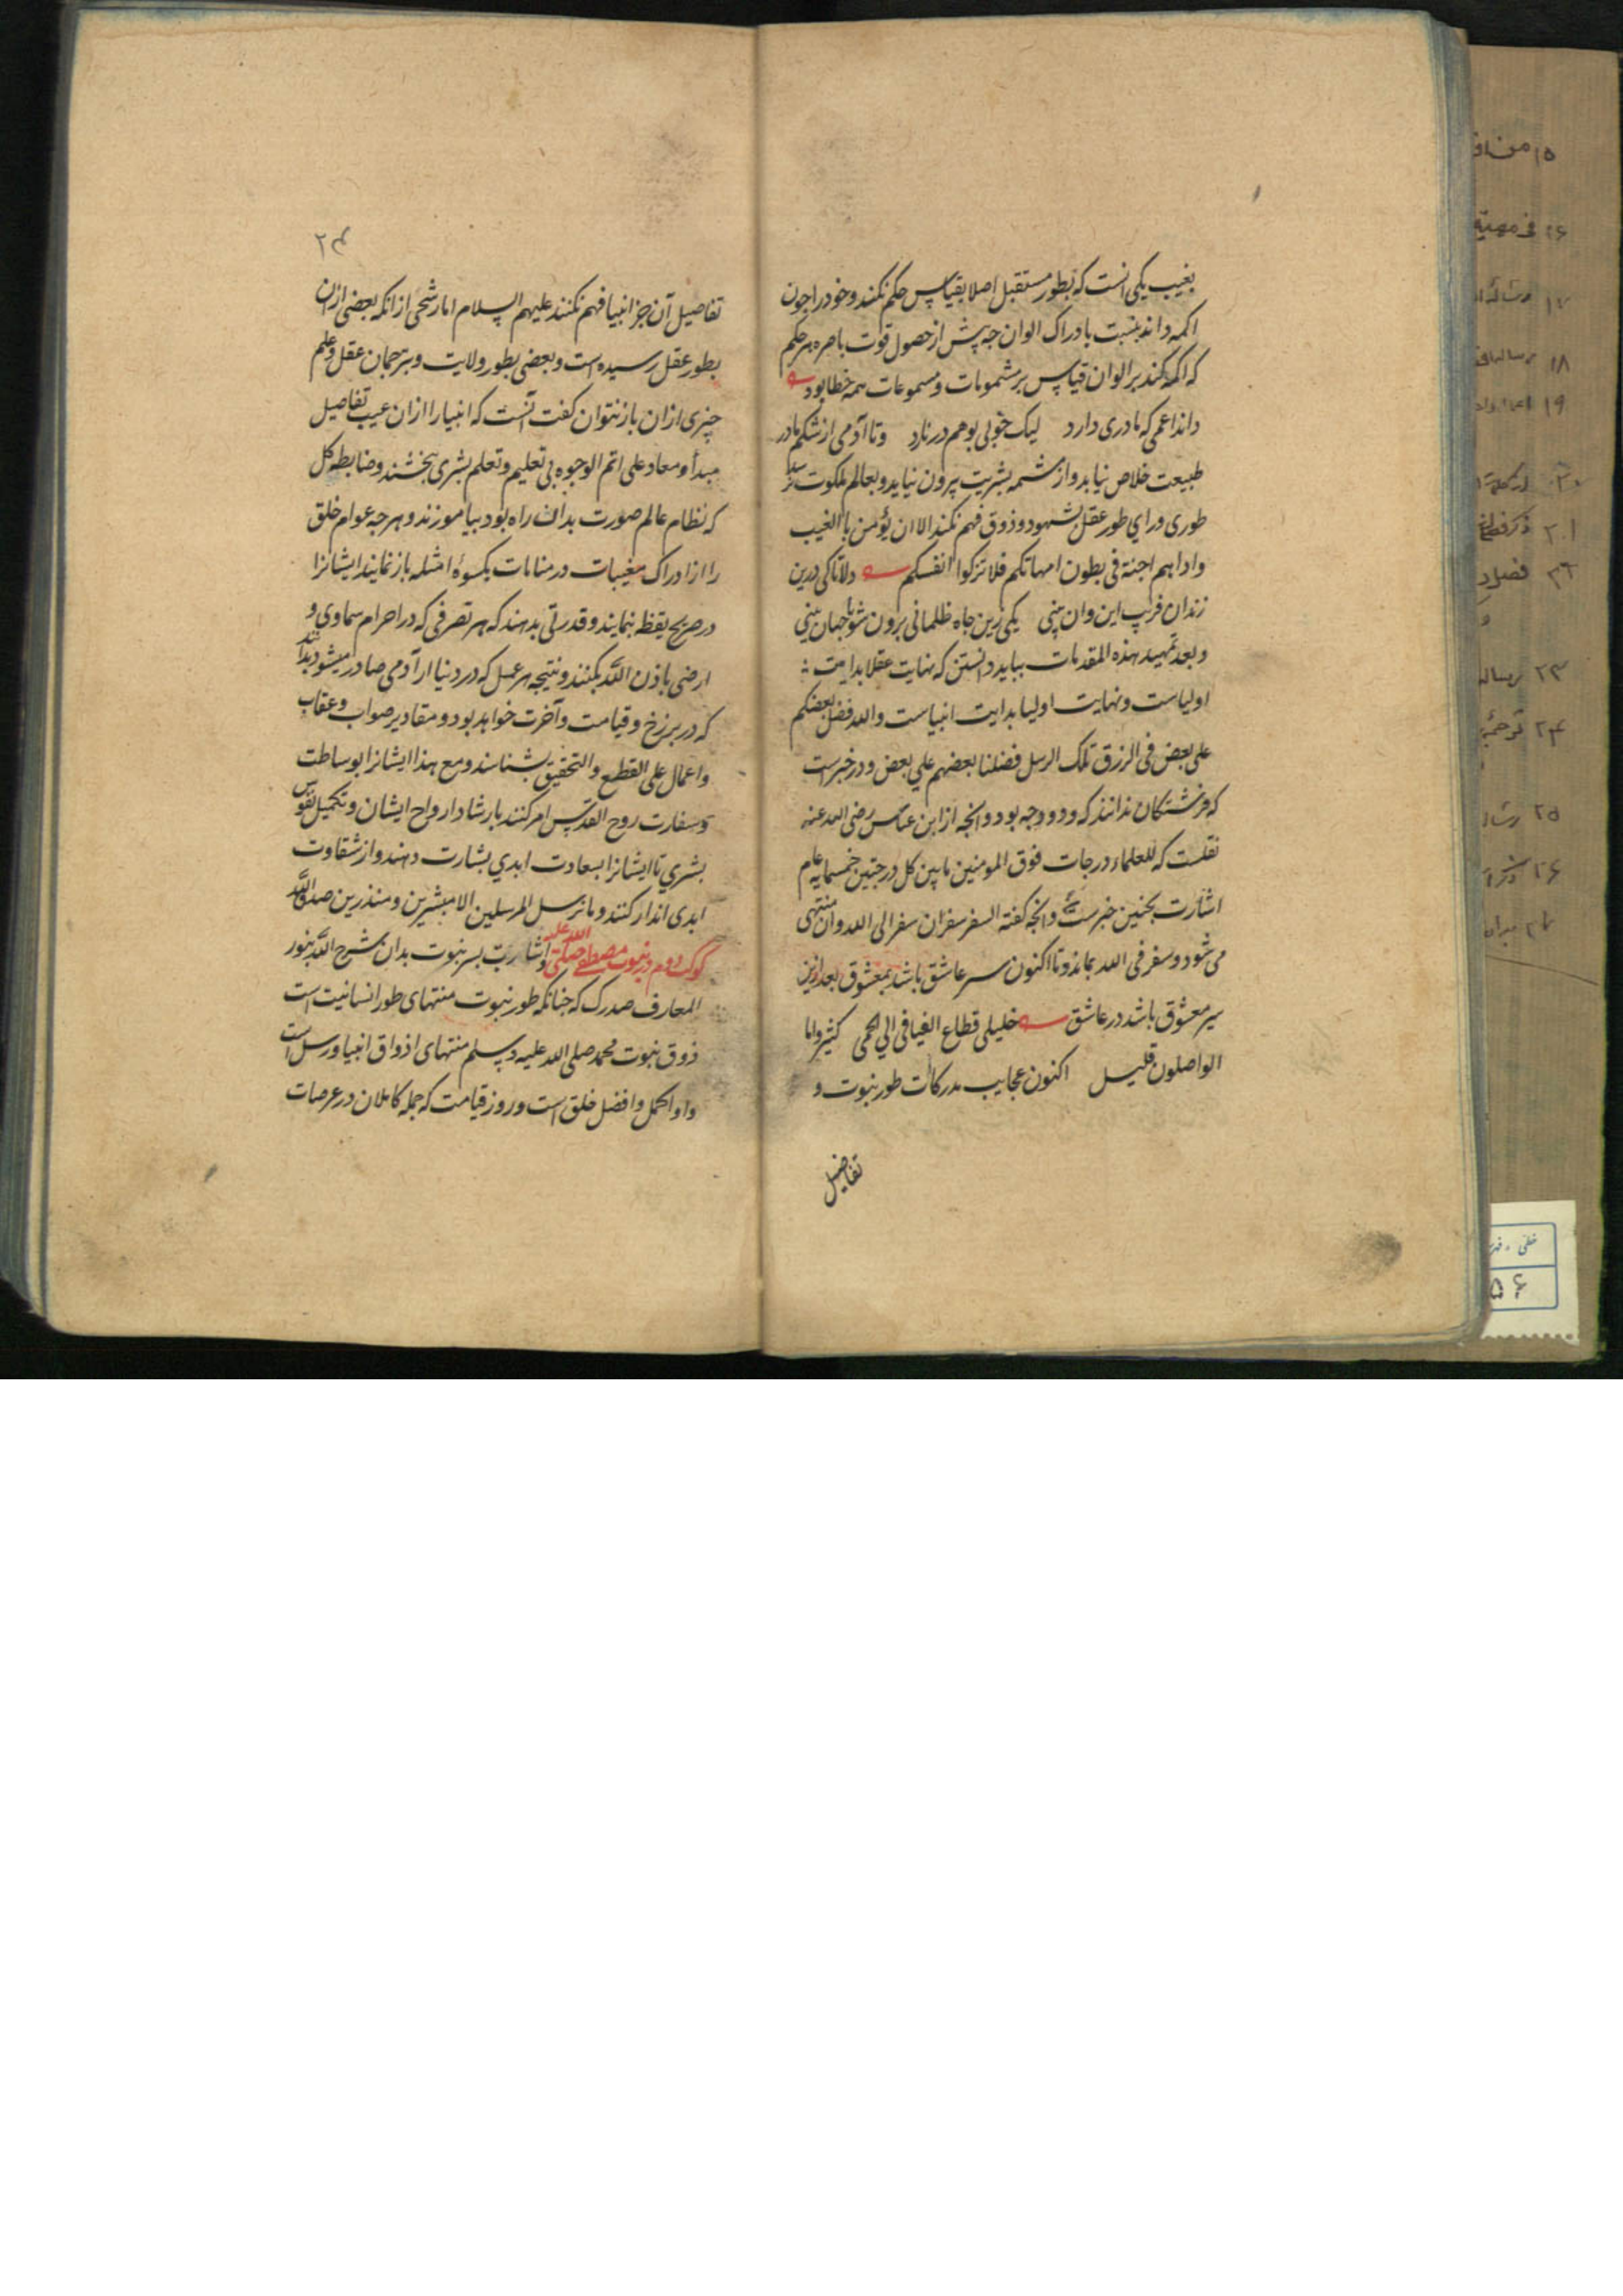 بغیب یکی انست که بطور مستقبل اصلا بقیاس حکم نکنند و خود را جون
اکمه داند بنسبت با دراک الوان جه پیش از حصول قوت باصره هر حکم
که اکمه کند بر الوان قیاس بر مشمومات و مسموعات همه خطا بود
داند اعمی که مادری دارد لیک خوبی بوهم در نارد وتا آدمی از شکم مادر
طبیعت خلاص نیابد و از مشیمه بشریت بیرون نیاید و بعالم ملکوت
طوری ورای طور عقل بشهود و ذوق فهم نکند الا ان یؤمن با الغیب
واذ انتم اجنة فی بطون امهاتکم فلا تزکوا انفسکم دلا تا کی درین
زندان فریب این وان بینی یکی زین جاه ظلمانی برون شو تا جهان بینی
و بعد تمهید هذه المقدمات بباید دانستن که نهایت عقلا بدایت
اولیاست و نهایت اولیا بدایت انبیاست والله فضل بعضکم
علی بعض فی الرزق تلک الرسل فضلنا بعضهم علی بعض و در خبر است
که فرشتگان ندانند که
و انجه از ابن عباس رضی الله عنه
نقلست که للعلماء درجات فوق المومنین مابین کل درجتین خمسمایه عام
اشارت بجنین خبرست و انجه گفته السفر سفران سفر الی الله وان منتهی
می شود و سفر فی الله بماند و تا اکنون سیر عاشق باشد بمعشوق بعد ازین
سیر معشوق باشد در عاشق خلیلی قطاع الفیافی الی الحمی کثیر واما
الواصلون قلیل اکنون عجایب مدرکات طور نبوت و
تفاصیل
۲۴
تفاصیل آن جز انبیا فهم نکنند علیهم السلام اما رشحی از انکه بعضی ازان
بطور عقل رسیده است و بعضی بطور ولایت و بترجمان عقل و علم
جیزی ازان باز نتوان کفت آنست که انبیا را ازان غیب تفاصیل
مبدأ و معاد علی اتم الوجوه بی تعلیم و تعلم بشری ببخشند و ضابطه کل
که نظام عالم صورت بدان راه بود بیاموزند و هر جه عوام خلق
را از ادراک مغیبات در منامات بکسوهٔ امثله باز نمایند ایشانرا
در صریح یقظه بنمایند و قدرتی بدهند که هر تصرفی که در اجرام سماوی و
ارضی باذن الله بکنند و نتیجه هر عمل که در دنیا از آدمی صادر میشود بدانند
که در برزخ و قیامت و آخرت خواهد بود و مقادیر صواب و عقاب
و اعمال علی القطع و التحقیق بشناسند و مع هذا ایشانرا بوساطت
و سفارت روح القدس امر کنند بارشاد ارواح ایشان و تکمیل نفوس
بشری تا ایشانرا بسعادت ابدی بشارت دهند و از شقاوت
ابدی انذار کنند و ما نرسل المرسلین الا مبشرین و منذرین صدق الله
کوکب دوم در نبوت مصطفی صلی الله علیه و اشارت بسر نبوت بدان شرح الله بنور
المعارف صدرک که جنانکه طور نبوت منتهای طور انسانیت است
ذوق نبوت محمد صلی الله علیه وسلم منتهای اذواق انبیا و رسل است
و او اکمل و افضل خلق است و روز قیامت که جمله کاملان در عرصات